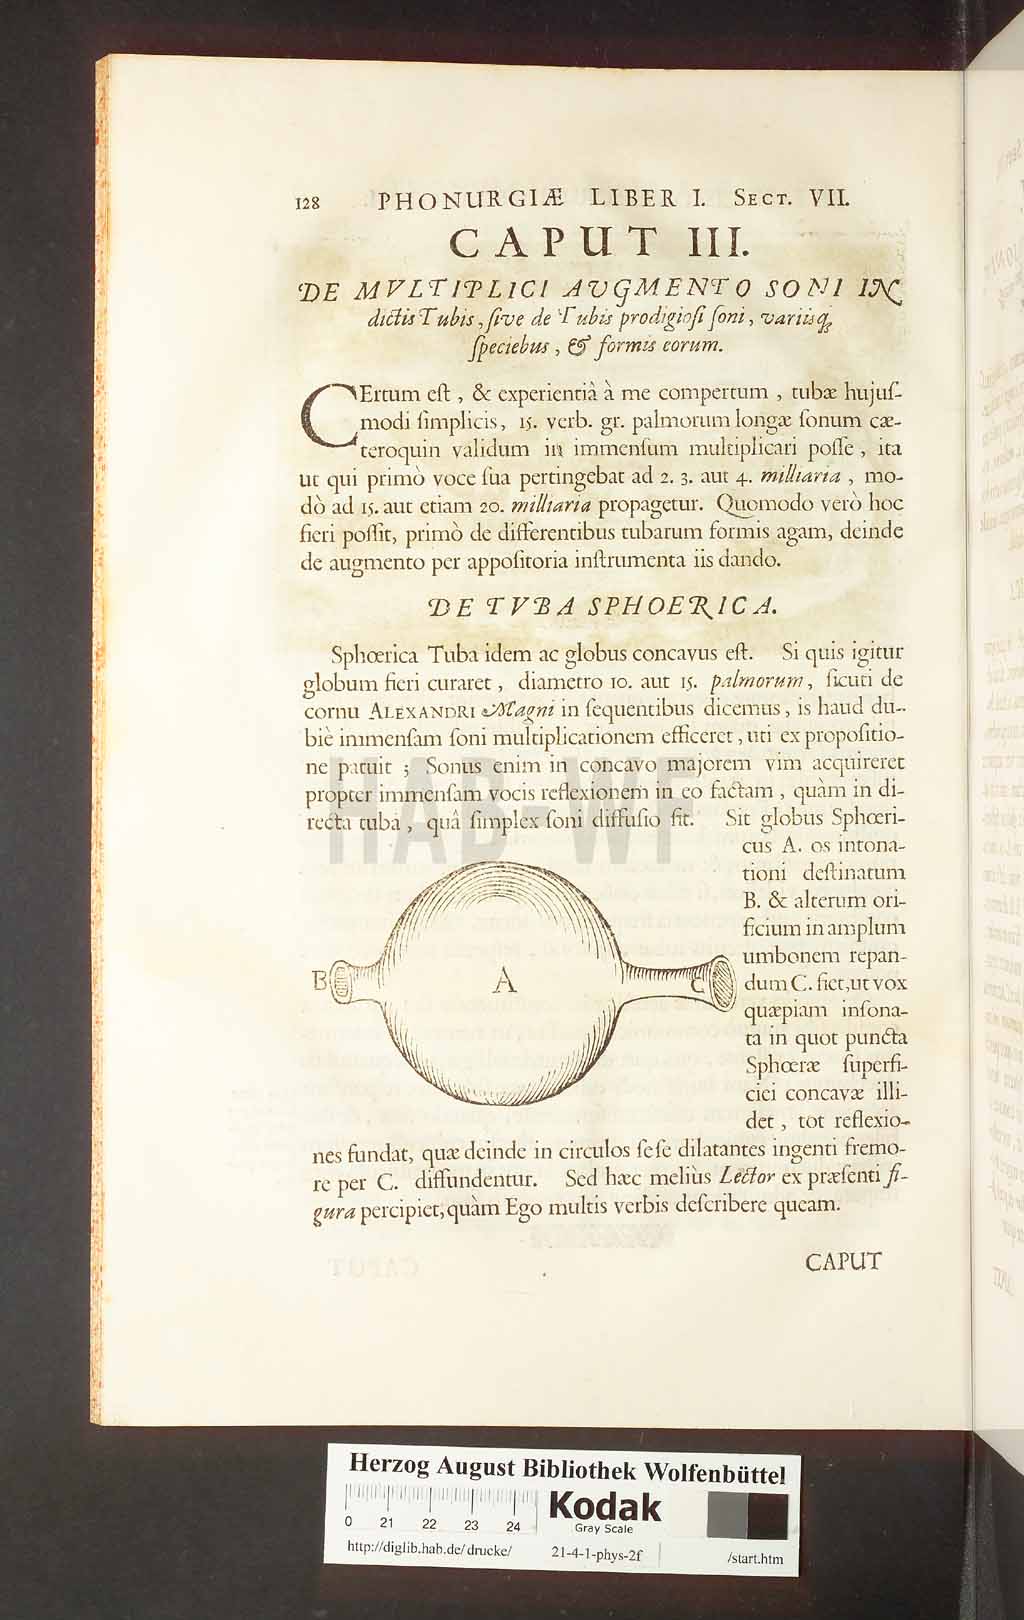 128 PHONURGIÆ LIBER I. SECT. VII.
CAPUT III.
DE MVLTIPLICI AUGMENTO SONI IN
dictis Tubis, ſive de Tubis prodigioſi ſoni, variisq;
ſpeciebus, & formis eorum.
CErtum eſt, & experientiâ à me compertum, tubæ hujuſ-
modi ſimplicis, 15. verb. gr. palmorum longæ ſonum cæ-
teroquin validum in immenſum multiplicari poſſe, ita
ut qui primò voce ſua pertingebat ad 2. 3. aut 4. milliaria, mo-
dò ad 15. aut etiam 20. milliaria propagetur. Quomodo verò hoc
fieri poſſit, primò de differentibus tubarum formis agam, deinde
de augmento per appoſitoria inſtrumenta iis dando.
DE TVBA SPHOERICA.
Sphœrica Tuba idem ac globus concavus eſt. Si quis igitur
globum fieri curaret, diametro 10. aut 15. palmorum, ſicuti de
cornu ALEXANDRI Magni in ſequentibus dicemus, is haud du-
biè immenſam ſoni multiplicationem efficeret, uti ex propoſitio-
ne patuit; Sonus enim in concavo majorem vim acquireret
propter immenſam vocis reflexionem in eo factam, quàm in di-
recta tuba, quâ ſimplex ſoni diffuſio fit. Sit globus Sphœri-
cus A. os intona-
tioni deſtinatum
B. & alterum ori-
ficium in amplum
umbonem repan-
dum C. fiet, ut vox
quæpiam inſona-
ta in quot puncta
Sphœræ ſuperfi-
ciei concavæ illi-
det, tot reflexio-
B A C
nes fundat, quæ deinde in circulos ſeſe dilatantes ingenti fremo-
re per C. diffundentur. Sed hæc meliùs Lector ex præſenti fi-
gura percipiet, quàm Ego multis verbis deſcribere queam.
CAPUT
HAB-WF
Herzog August Bibliothek Wolfenbüttel
0 21 22 23 24
Kodak
Gray Scale
http://diglib.hab.de/drucke/ 21-4-1-phys-2f /start.htm